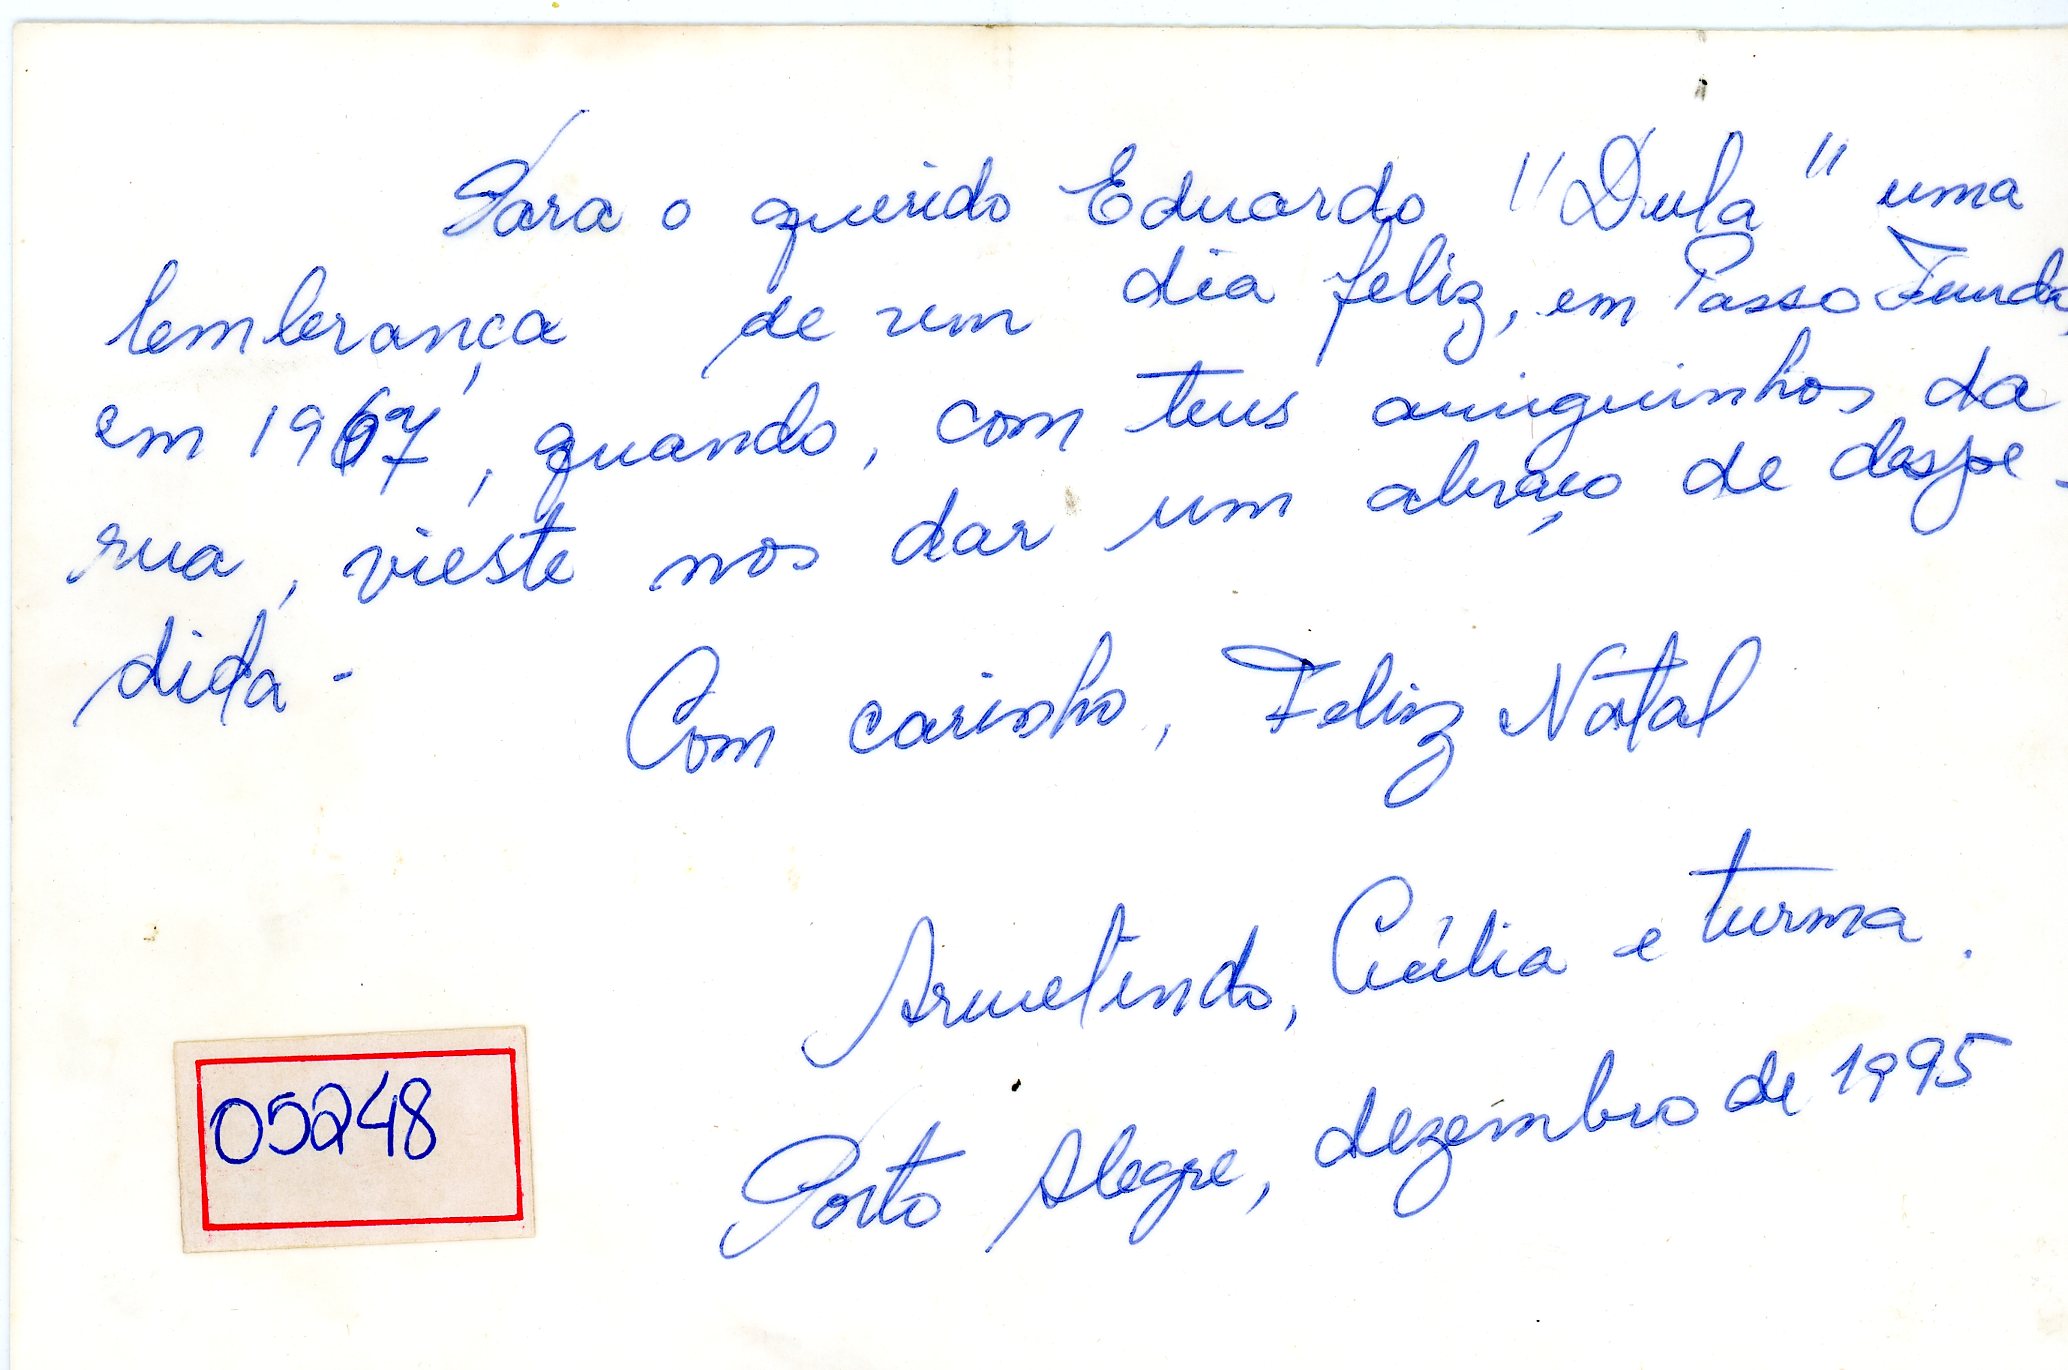 Para o querido Eduardo "Dula" uma
lembrança de um dia feliz, em Passo Fundo,
em 1967, quando, com teus amiguinhos da
rua, vieste nos dar um abraço de despe-
dida -
Com carinho, Feliz Natal
Armelindo, Cecília e turma.
Porto Alegre, dezembro de 1995
05248